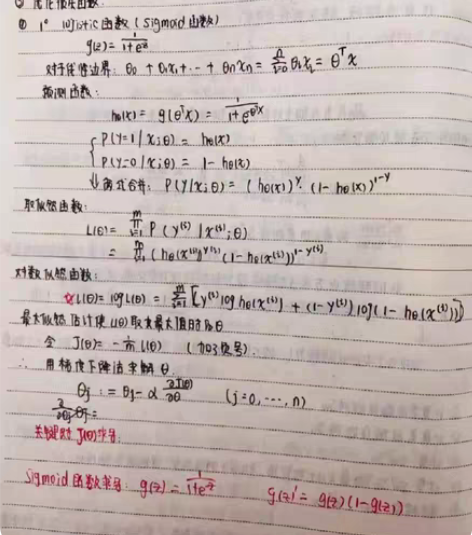 ② 优化损失函数
① 1° logistic 函数 ( Sigmoid 函数)
g(z) = 1/(1+e^z)
对于线性边界: θ0 + θ1x1 + ··· + θnxn = Σ(i=0..n) θixi = θ^T x
预测函数:
hθ(x) = g(θ^T x) = 1/(1+e^(θ^T x))
P(y=1 | x;θ) = hθ(x)
P(y=0 | x;θ) = 1 - hθ(x)
↓两式合并: P(y|x;θ) = (hθ(x))^y · (1 - hθ(x))^(1-y)
取似然函数:
L(θ) = Π(i=1..m) P(y^(i) | x^(i);θ)
= Π(i=1..m) (hθ(x^(i)))^y^(i) (1 - hθ(x^(i)))^(1-y^(i))
对数似然函数:
l(θ) = log L(θ) = Σ(i=1..m) [y^(i) log hθ(x^(i)) + (1-y^(i)) log(1 - hθ(x^(i)))]
最大似然估计使 l(θ) 取最大值时的 θ
令 J(θ) = -1/m l(θ) (加了负号)
∴ 用梯度下降法求解 θ.
θj := θj - α ∂J(θ)/∂θ (j=0, ···, n)
关键是对 J(θ) 求导
Sigmoid 函数求导: g(z) = 1/(1+e^z) g(z)' = g(z)(1-g(z))